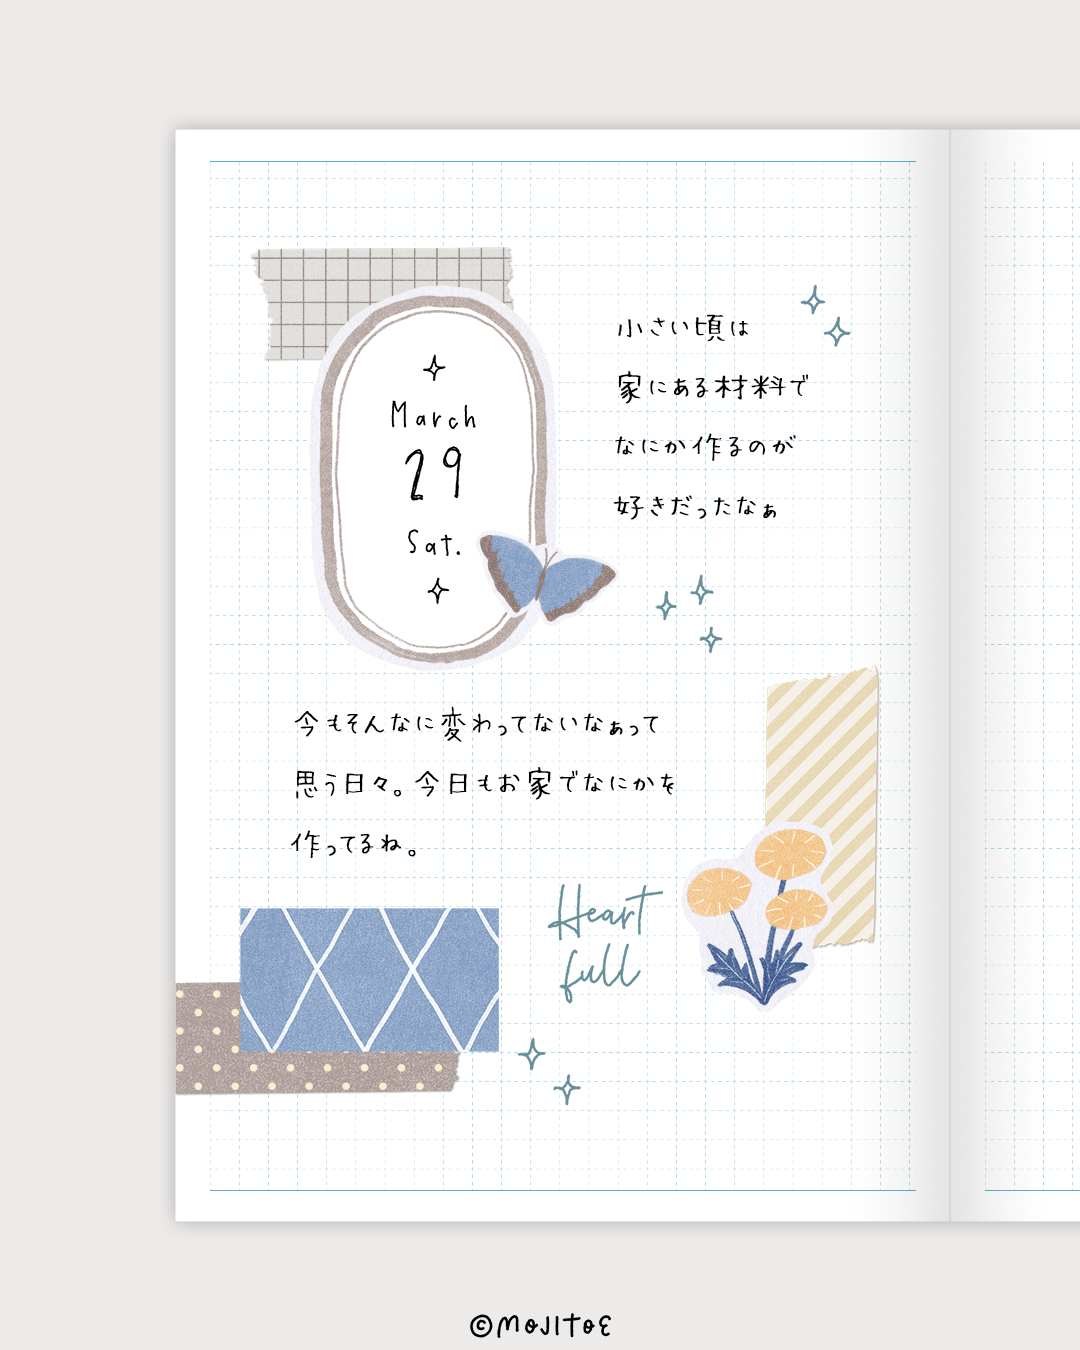 March
29
Sat.
小さい頃は
家にある材料で
なにか作るのが
好きだったなぁ
今もそんなに変わってないなぁって
思う日々。今日もお家でなにかを
作ってるね。
Heart
full
©MOJITOE